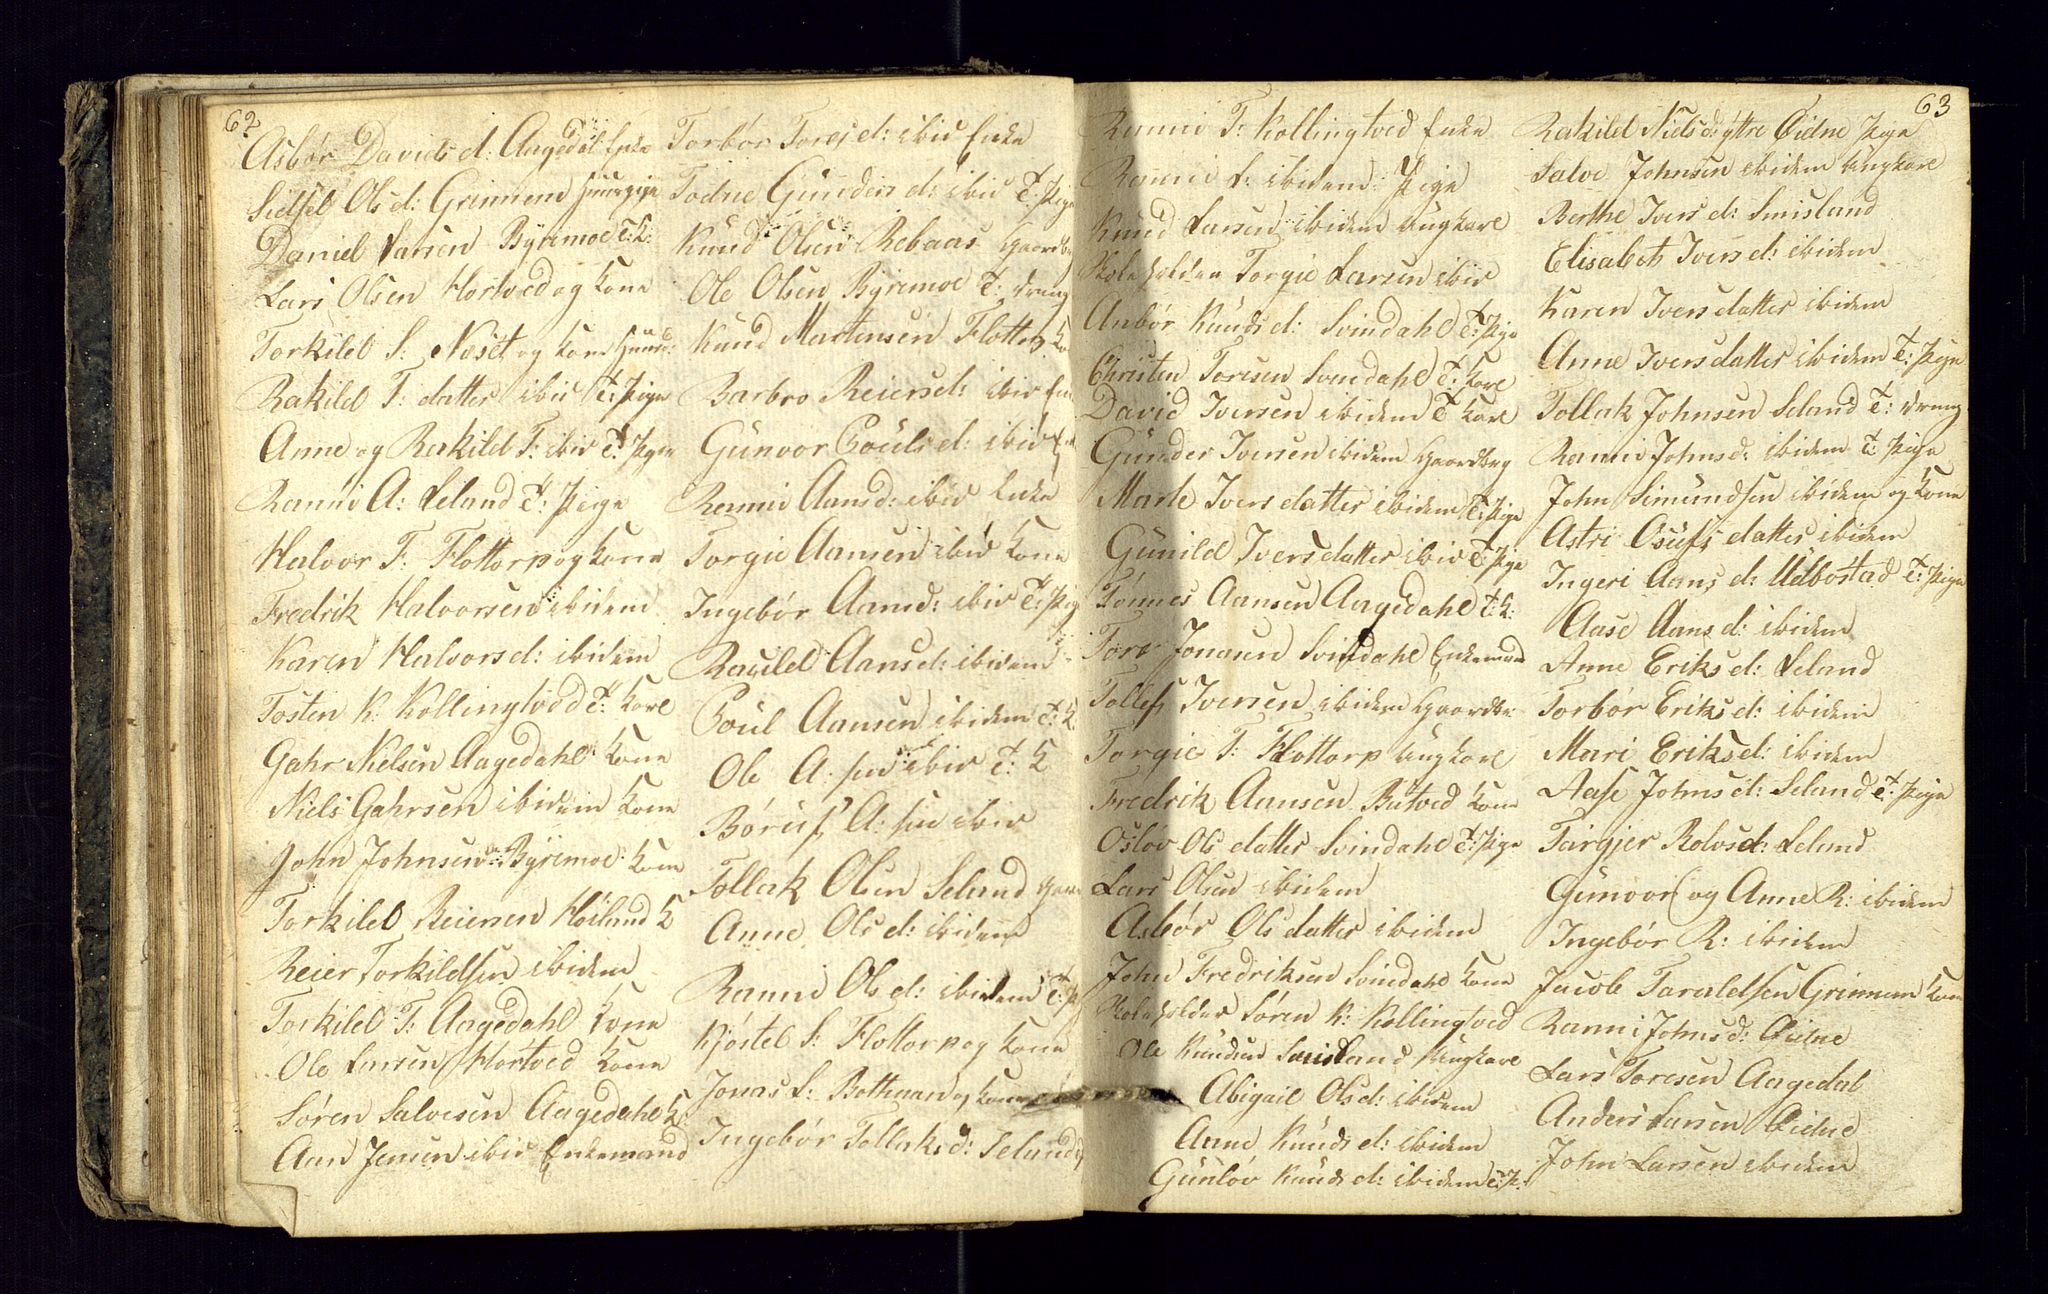 62
Asbør Davids d: Aagedal Enke
Sidsel Ols d: Grinnem Huuspige
Daniel Larsen Byremoe T: K:
Lars Olsen Hortved og Kone
Torkild S: Næset og Kone Huusd:
Rakild T: datter ibid T: Pige
Anne og Rakild T: ibid T: Pige
Ranni A: Leland T: Pige
Halvor T: Flottorp og Kone
Fredrik Halvorsen ibidem
Karen Halvors d: ibidem
Tosten K: Kollingtved T: Karl
Gahr Nielsen Aagedahl Kone
Niels Gahrsen ibidem Kone
John Johnsen Byremoe Kone
Torkild Reiersen Høiland K
Reier Torkildsen ibidem
Torkild T: Aagedahl Kone
Ole Larsen Hortved Kone
Søren Salvesen Aagedahl K:
Aan Jensen ibid Enkemand
Torbør Tores d: ibid Enke
Todne Gunders d: ibid T: Pige
Knud Olsen Rebaas Gaardb
Ole Olsen Byremoe T: Dreng
Knud Martensen Flottorp Ko
Barbro Reiersd: ibid En
Gunvor Pouls d: ibid En
Ranni Aansd: ibid Enke
Torgie Aansen ibid Kone
Ingebør Aansd: ibid T: Pig
Raquild Aansd: ibidem
Poul Aansen ibidem T: K
Ole A: sen ibid T: K
Børuf A: sen ibid
Tollak Olsen Seland Gaar
Anne Ols d: ibidem
Ranni Ols d: ibidem T: P
Kjøstel S: Flottorp og Kone
Jonas L: Bothnan og Kone
Ingebør Tollaks d: Seland
63
Ranni T: Kollingtved Enke
Ranni L: ibidem: Pige
Knud Larsen ibidem Ungkarl
Skoleholder Torgie Larsen ibid
Anbør Knuds d: Svindahl T: Pige
Christen Toresen Svindahl T: Karl
David Iversen ibidem T Karl
Gunder Iversen ibidem Gaardbrg
Marte Ivers datter ibidem T: Pige
Gunild Ivers datter ibid T: Pige
Tønnes Aansen Aagedahl T: K:
Tore Jonasen Svindahl Enkemand
Tollef Iversen ibidem Gaardbr
Torgie T: Flottorp Ungkarl
Fredrik Aansen Butved Kone
Osløv Ols datter Svindahl T: Pige
Lars Olsen ibidem
Asbør Ols datter ibidem
John Fredriksen Svindahl Kone
Skoleholder Søren K: Kollingtved
Ole Knudsen Smisland Ungkarl
Abigail Ols d: ibidem
Anne Knuds d: ibidem
Gunløv Knuds d: ibidem T: P:
Rakild Niels d: Yttre Øidne Pige
Salve Johnsen ibidem Ungkarl
Berthe Ivers d: Smisland
Elisabeth Ivers d: ibidem
Karen Ivers datter ibidem
Anne Ivers datter ibidem T: Pige
Tollak Johnsen Seland T: Dreng
Ranni Johns d: ibidem T: Pige
John Simundsen ibidem og Kone
Astri Osufs datter ibidem
Ingeri Aans d: Ubostad T: Pige
Aase Aans d: ibidem
Anne Eriks d: Leland
Torbør Eriks d: ibidem
Mari Eriks d: ibidem
Aase Johns d: Seland T: Pige
Targjer Rolvs d: Leland
Gunvor og Anne R: ibidem
Ingebør R: ibidem
Jacob Taraldsen Grinnem Kone
Ranni Johns d: Øidne
Lars Toresen Aagedal
Anders Larsen Øidne
John Larsen ibidem